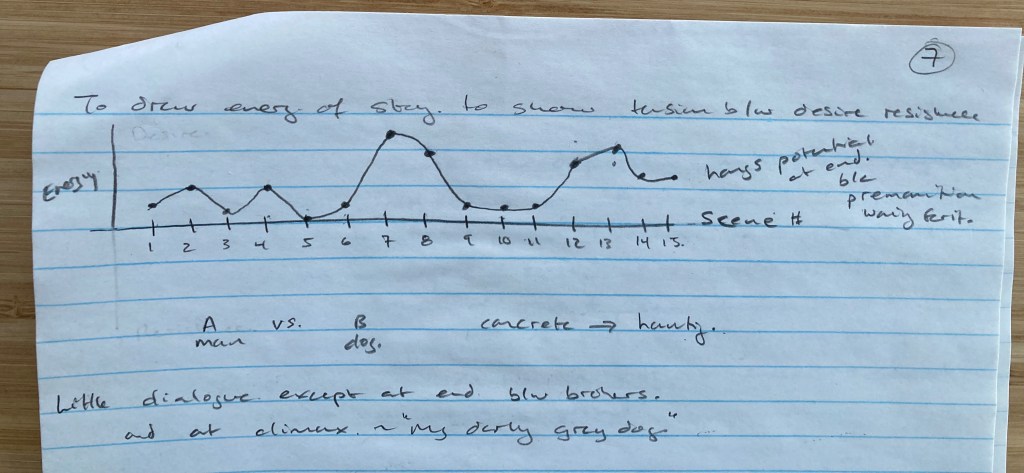 7
To draw energ. of story. to show tension b/w desire resistence
Desire
Energy
hangs potential
at end.
b/c
premonition
Scene #
1 2 3 4 5 6 7 8 9 10 11 12 13 14 15.
A vs. B concrete →
man dog.
Little dialogue except at end b/w brothers.
and at climax. ~ "My darly grey dog"